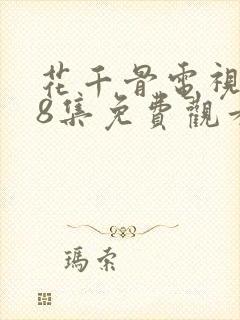 花千骨電視
8集免費觀看
瑪索